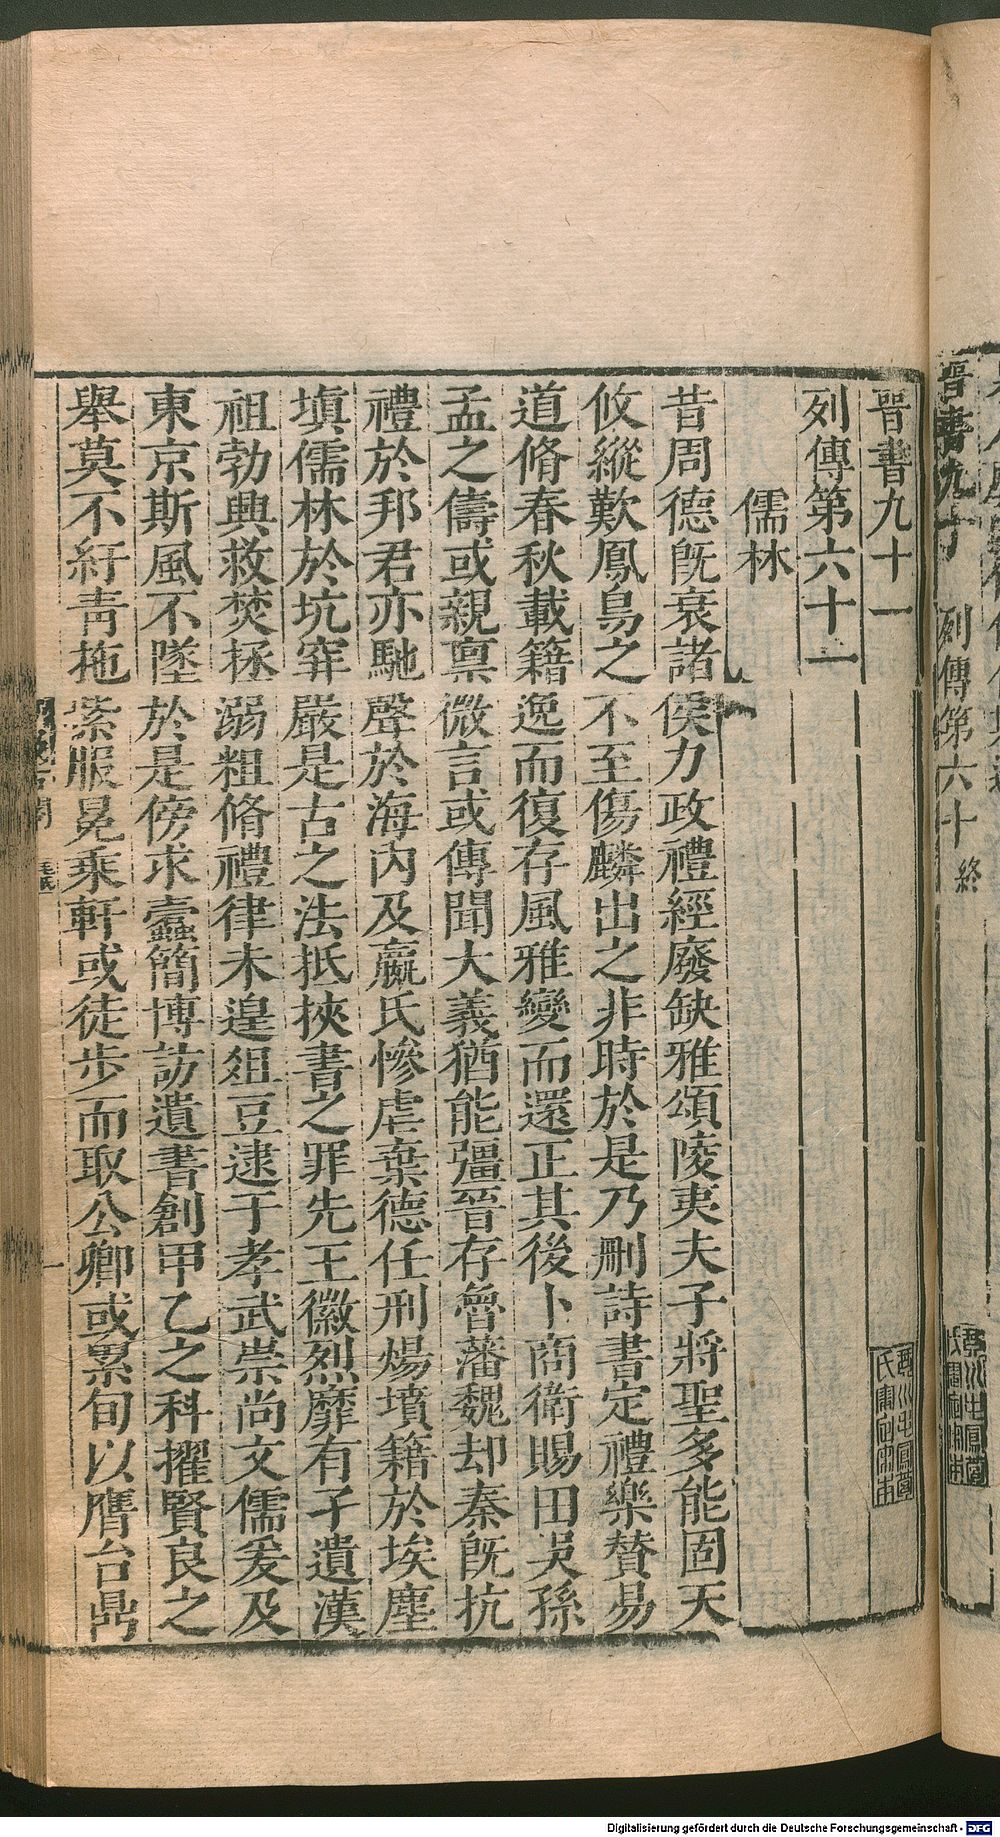 晉書九十一
列傳第六十一
儒林
昔周德旣衰諸侯力政禮經廢缺雅頌陵夷夫子將聖多能固天
攸縱歎鳳鳥之不至傷麟出之非時於是乃刪詩書定禮樂贊易
道脩春秋載籍逸而復存風雅變而還正其後卜商衛賜田吳孫
孟之儔或親稟微言或傳聞大義猶能彊晉存魯藩魏却秦旣抗
禮於邦君亦馳聲於海內及嬴氏慘虐棄德任刑煬墳籍於埃塵
塡儒林於坑穽嚴是古之法抵挾書之罪先王徽烈靡有孑遺漢
祖勃興救焚拯溺粗脩禮律未遑俎豆逮于孝武崇尚文儒爰及
東京斯風不墜於是傍求蠹簡博訪遺書創甲乙之科擢賢良之
舉莫不紆靑拖紫服冕乘軒或徒步而取公卿或累旬以膺台鼎
晉書九十
列傳第六十
終
一
Digitalisierung gefördert durch die Deutsche Forschungsgemeinschaft - DFG